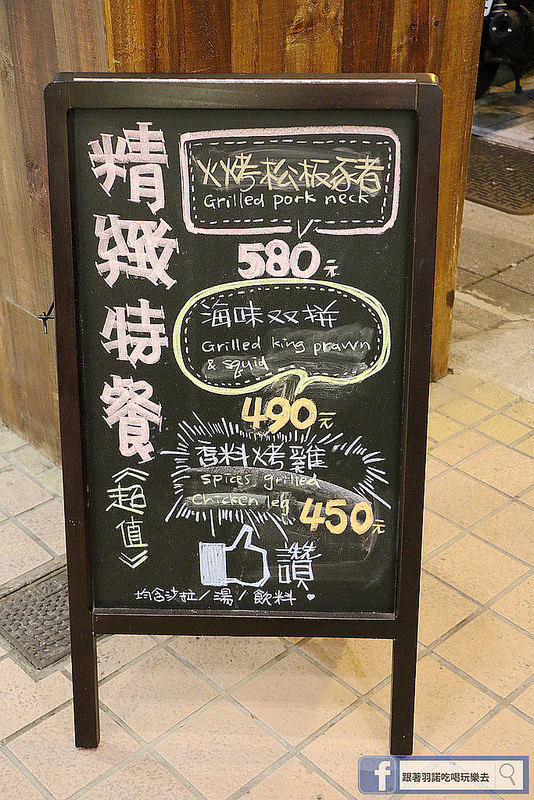 精緻特餐
《超值》
火烤松板豬
Grilled pork neck
580元
海味双拼
Grilled king prawn
& squid
490元
香料烤雞
spices grilled
chicken leg
450元
讚
均含沙拉/湯/飲料
f 跟著羽諾吃喝玩樂去